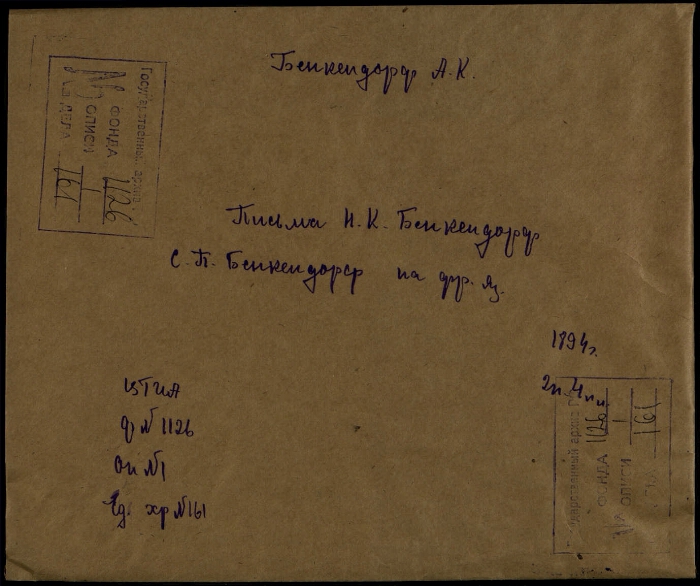 Бенкендорф А.К.
Государственный архив
ФОНДА 1126
№ ОПИСИ 1
№ ДЕЛА 161
Письма Н.К. Бенкендорф
С.П. Бенкендорф на фр. яз.
1894г.
ЦГИА
ф № 1126
оп №1
Ед. хр №161
Государственный архив
ФОНДА 1126
№ ОПИСИ 1
161